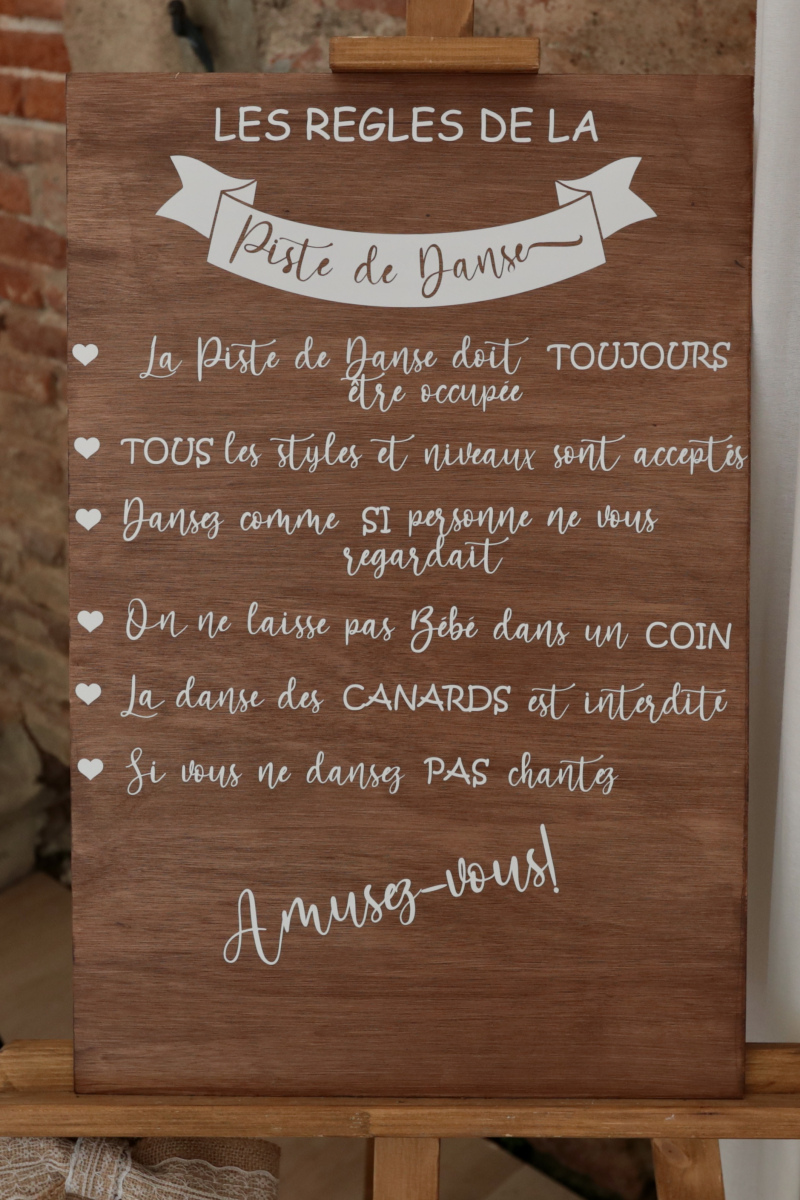 LES REGLES DE LA
Piste de Danse
La Piste de Danse doit TOUJOURS
être occupée
TOUS les styles et niveaux sont acceptés
Dansez comme SI personne ne vous
regardait
On ne laisse pas Bébé dans un COIN
La danse des CANARDS est interdite
Si vous ne dansez PAS chantez
Amusez-vous!